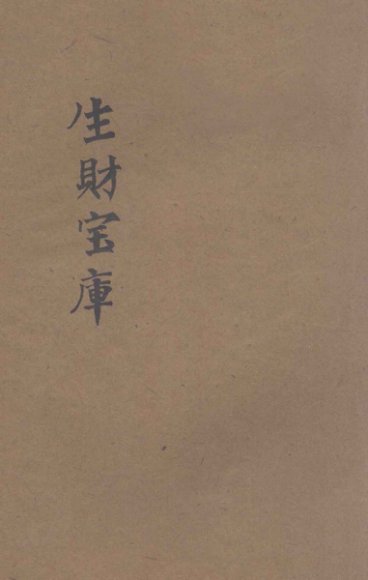 生財宝庫